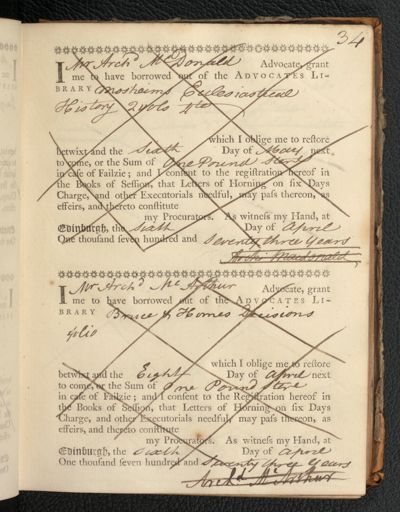 34
I Mr Archd McDonald Advocate, grant
me to have borrowed out of the ADVOCATES LI-
BRARY Moshaims Eclesiastical
History 2 vols 4to
which I oblige me to restore
betwixt and the Sixth Day of May next
to come, or the Sum of One Pound Sterg
in case of Failzie; and I consent to the registration hereof in
the Books of Session, that Letters of Horning on six Days
Charge, and other Executorials needful, may pass thereon, as
effeirs, and thereto constitute
my Procurators. As witness my Hand, at
Edinburgh, the Sixth Day of April
One thousand seven hundred and Seventy three Years
Archd Macdonald
I Mr Archd McArthur Advocate, grant
me to have borrowed out of the ADVOCATES LI-
BRARY Bruce & Homes Decisions
folio
which I oblige me to restore
betwixt and the Eight Day of April next
to come, or the Sum of One Pound Ster
in case of Failzie; and I consent to the Registration hereof in
the Books of Session, that Letters of Horning on six Days
Charge, and other Executorials needful, may pass thereon, as
effeirs, and thereto constitute
my Procurators. As witness my Hand, at
Edinburgh, the Sixth Day of April
One thousand seven hundred and Seventy three Years
Archd McArthur